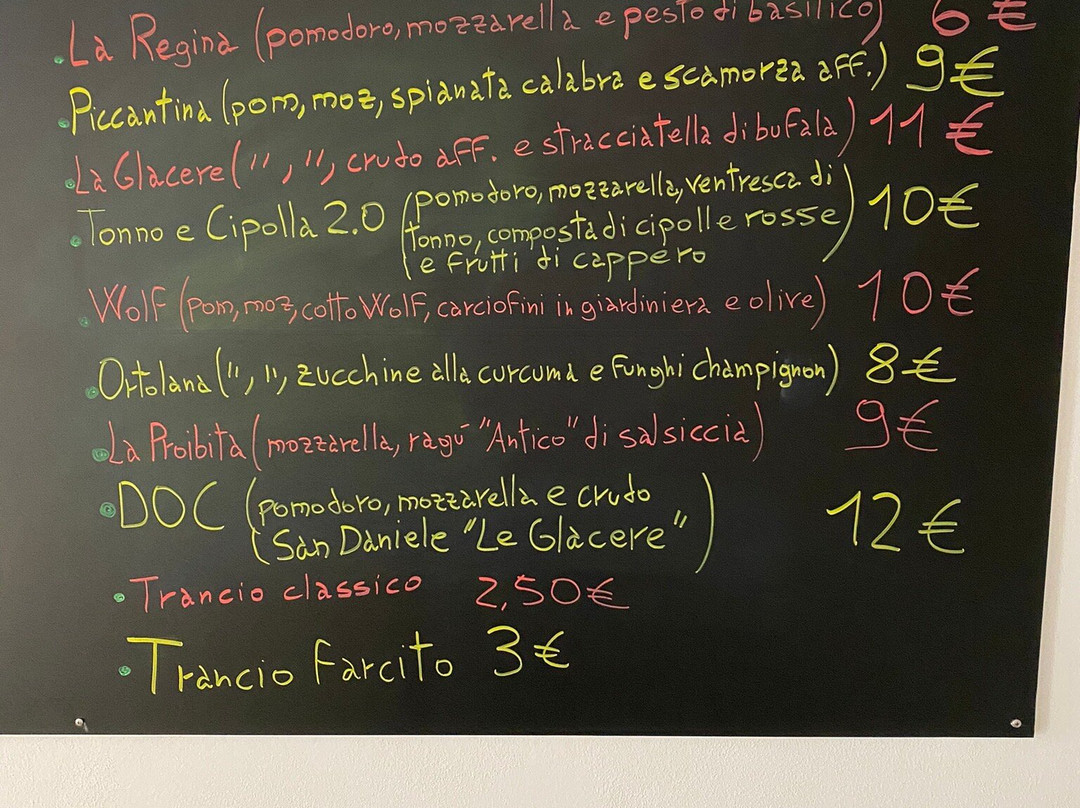 La Regina (pomodoro, mozzarella e pesto di basilico) 6 €
Piccantina (pom, moz, spianata calabra e scamorza aff.) 9€
La Glacere (", ", crudo aff. e stracciatella di bufala) 11 €
Tonno e Cipolla 2.0 (pomodoro, mozzarella, ventresca di
tonno, composta di cipolle rosse
e frutti di cappero) 10€
Wolf (pom, moz, cotto Wolf, carciofini in giardiniera e olive) 10€
Ortolana (", ", zucchine alla curcuma e funghi champignon) 8€
La Proibita (mozzarella, ragù "Antico" di salsiccia) 9€
DOC (pomodoro, mozzarella e crudo
San Daniele "Le Glacere") 12€
Trancio classico 2,50€
Trancio farcito 3€